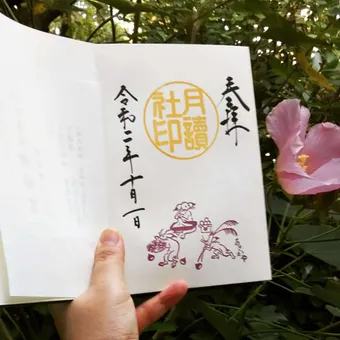 奉拝
月讀
社印
令和二年十月一日